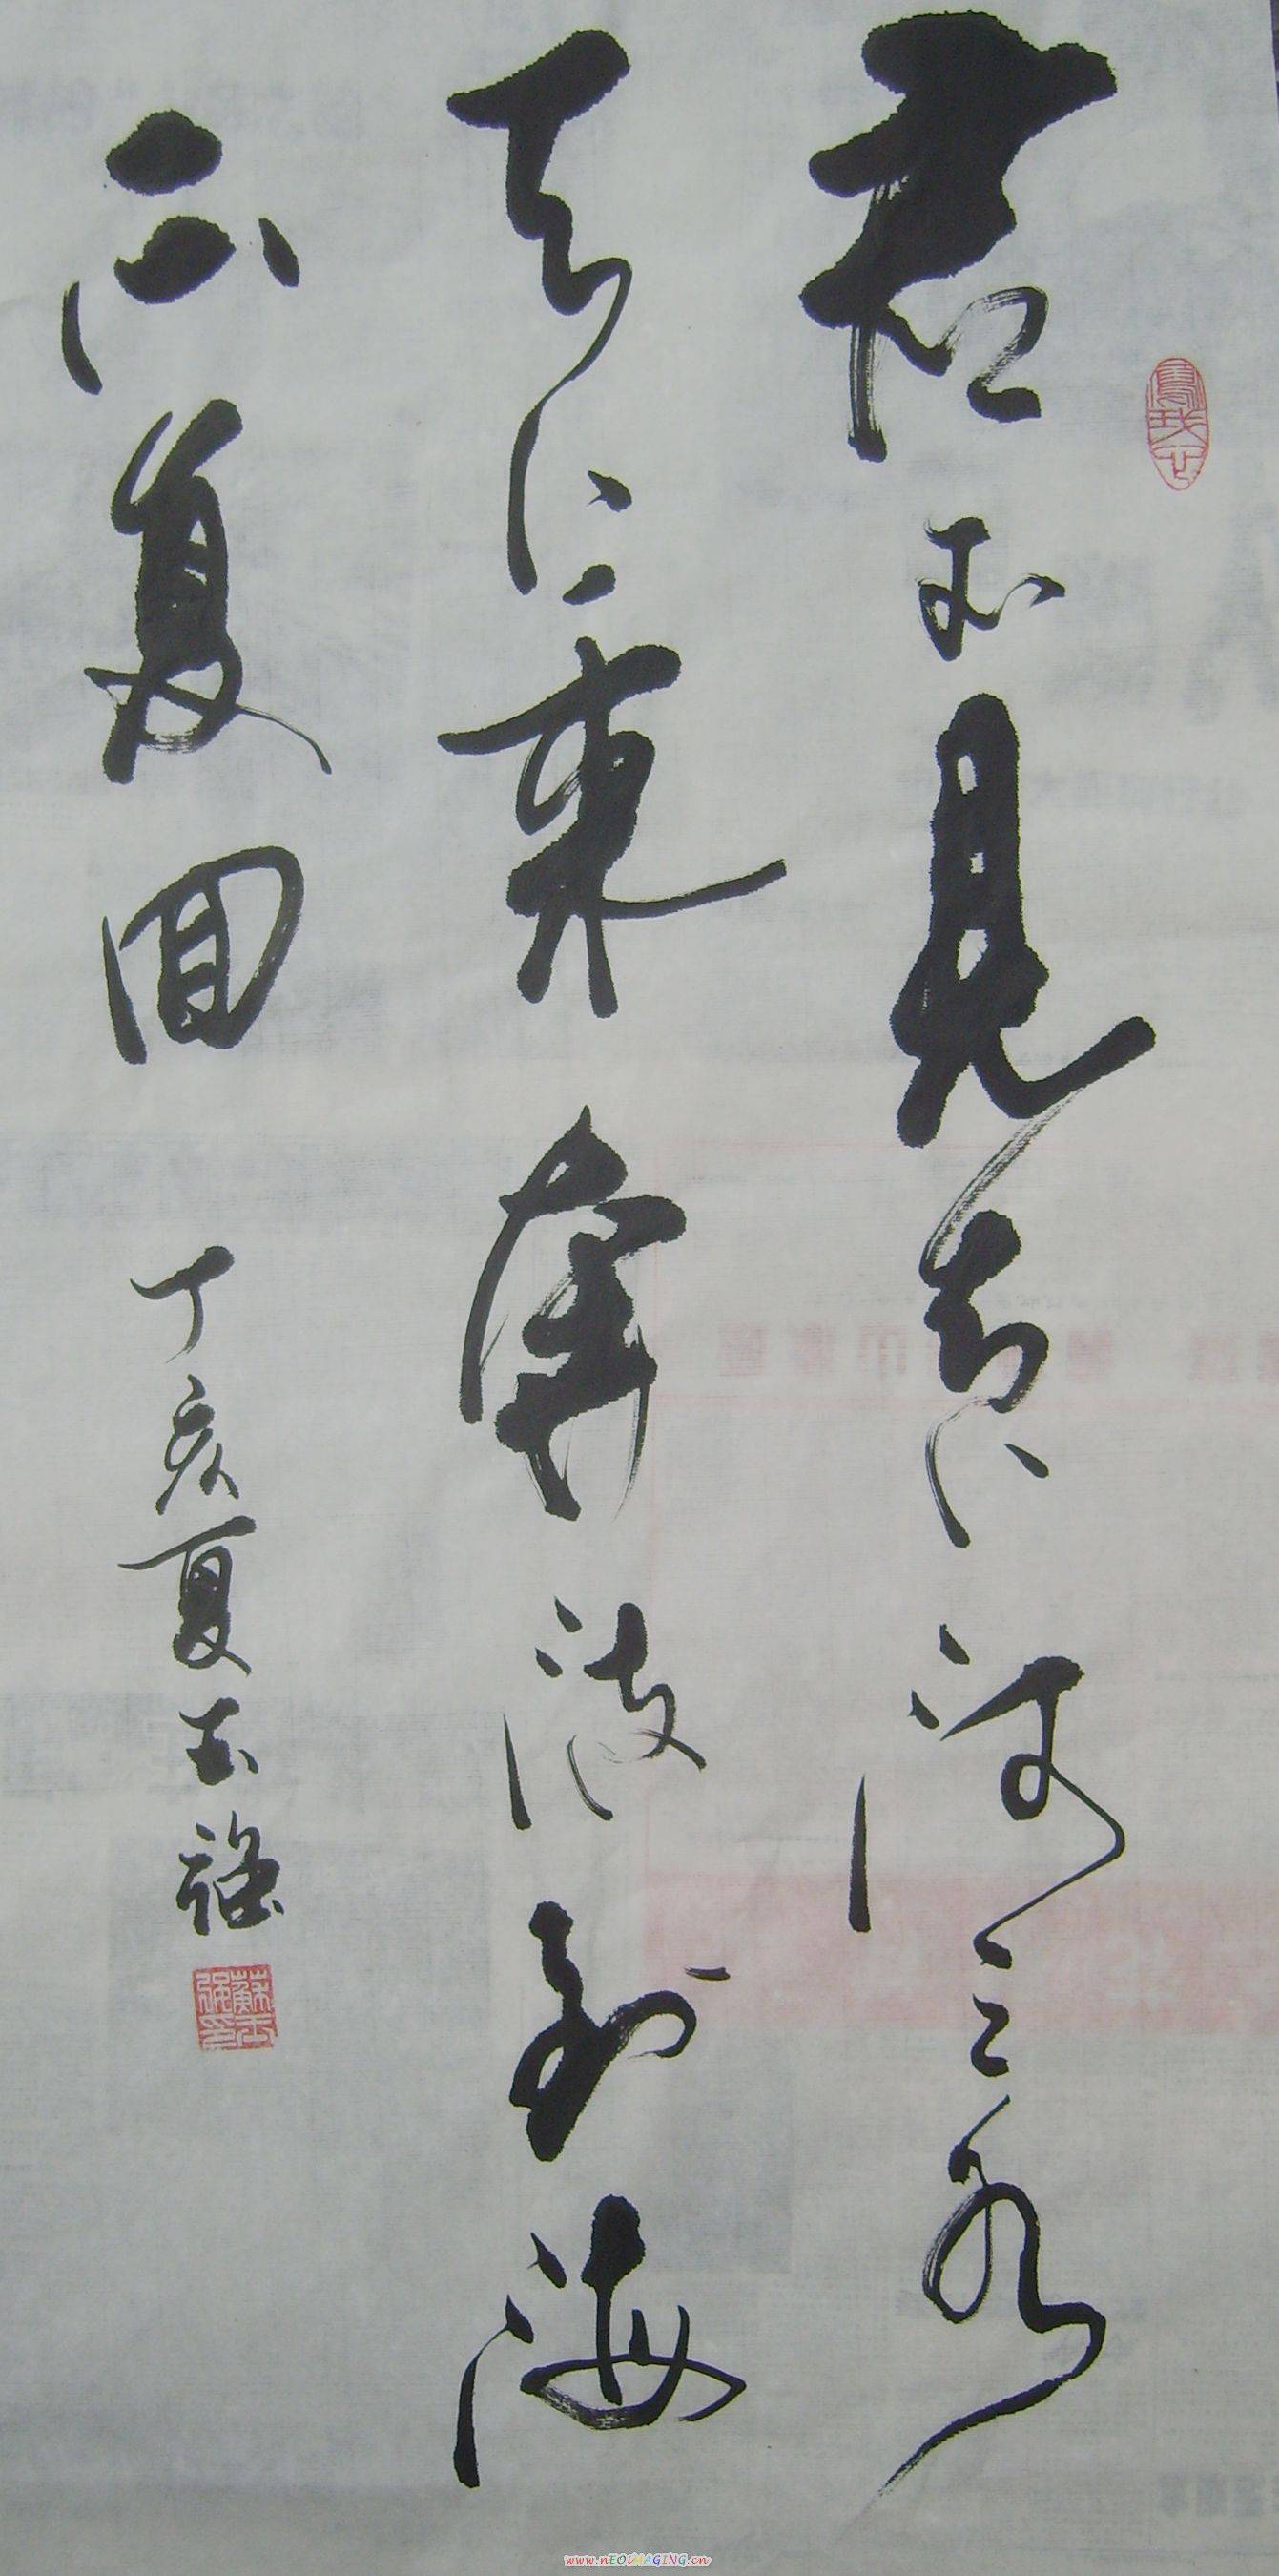 君不見黄河之水
天上来奔流到海
不复回
丁亥夏玉强
蘇玉强印
www.nEOiMAGING.cn